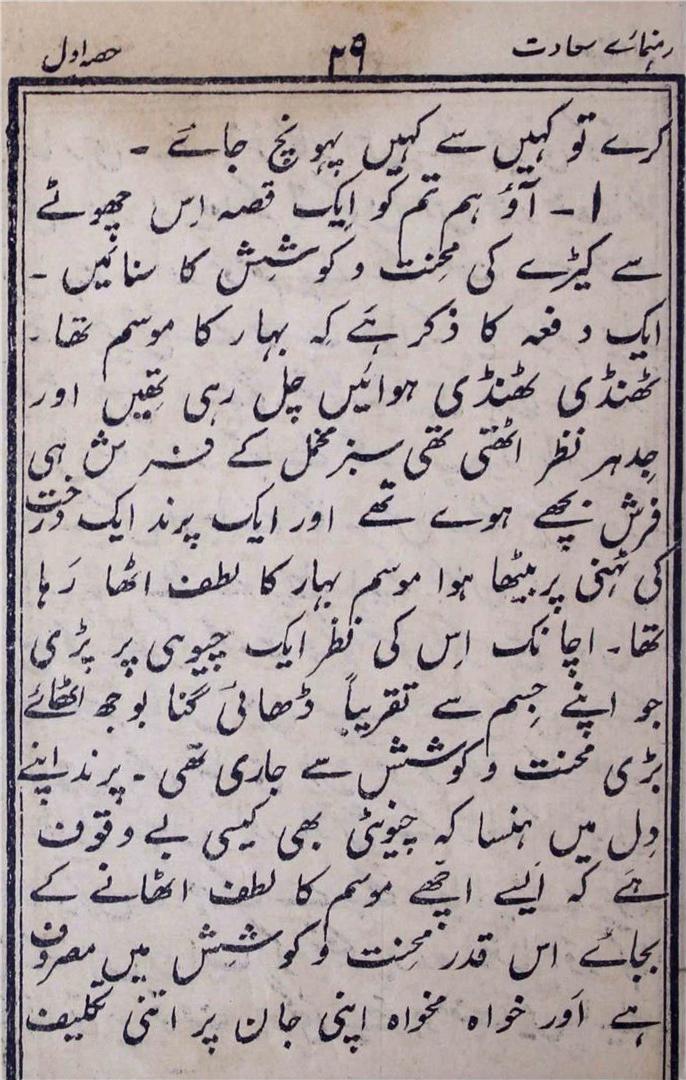 رہنمائے سعادت ۲۹ حصہ اول
کرے تو کہیں سے کہیں پہونچ جائے ۔
۱۔ آؤ ہم تم کو ایک قصہ اِس چھوٹے
سے کیڑے کی محِنت و کوشِش کا سنائیں ۔
ایک دفعہ کا ذکر ہَے کہ بہار کا موسم تھا ۔
ٹھنڈی ٹھنڈی ہوائیں چل رہی تھِیں اور
جِدہر نظر اٹھتی تھی سبز مخمل کے فرش ہی
فرش بچھے ہوے تھے اور ایک پرند ایک درخت
کی ٹہنی پر بیٹھا ہوا موسم بہار کا لطف اٹھا رَہا
تھا۔ اچانک اِس کی نظر ایک چیوہی پر پڑی
جو اپنے جِسم سے تقریباً ڈھائی گنا بوجھ اٹھائے
بڑی محنت و کوشش سے جاری تھی ۔ پرند اپنے
دِل میں ہنسا کہ چیونٹی بھی کیسی بے وقوف
ہَے کہ اَیسے اچھے موسم کا لطف اٹھانے کے
بجائے اس قدر محِنت و کوشِش میں مصروف
ہے اَور خواہ مخواہ اپنی جان پر اتنی تکلیف